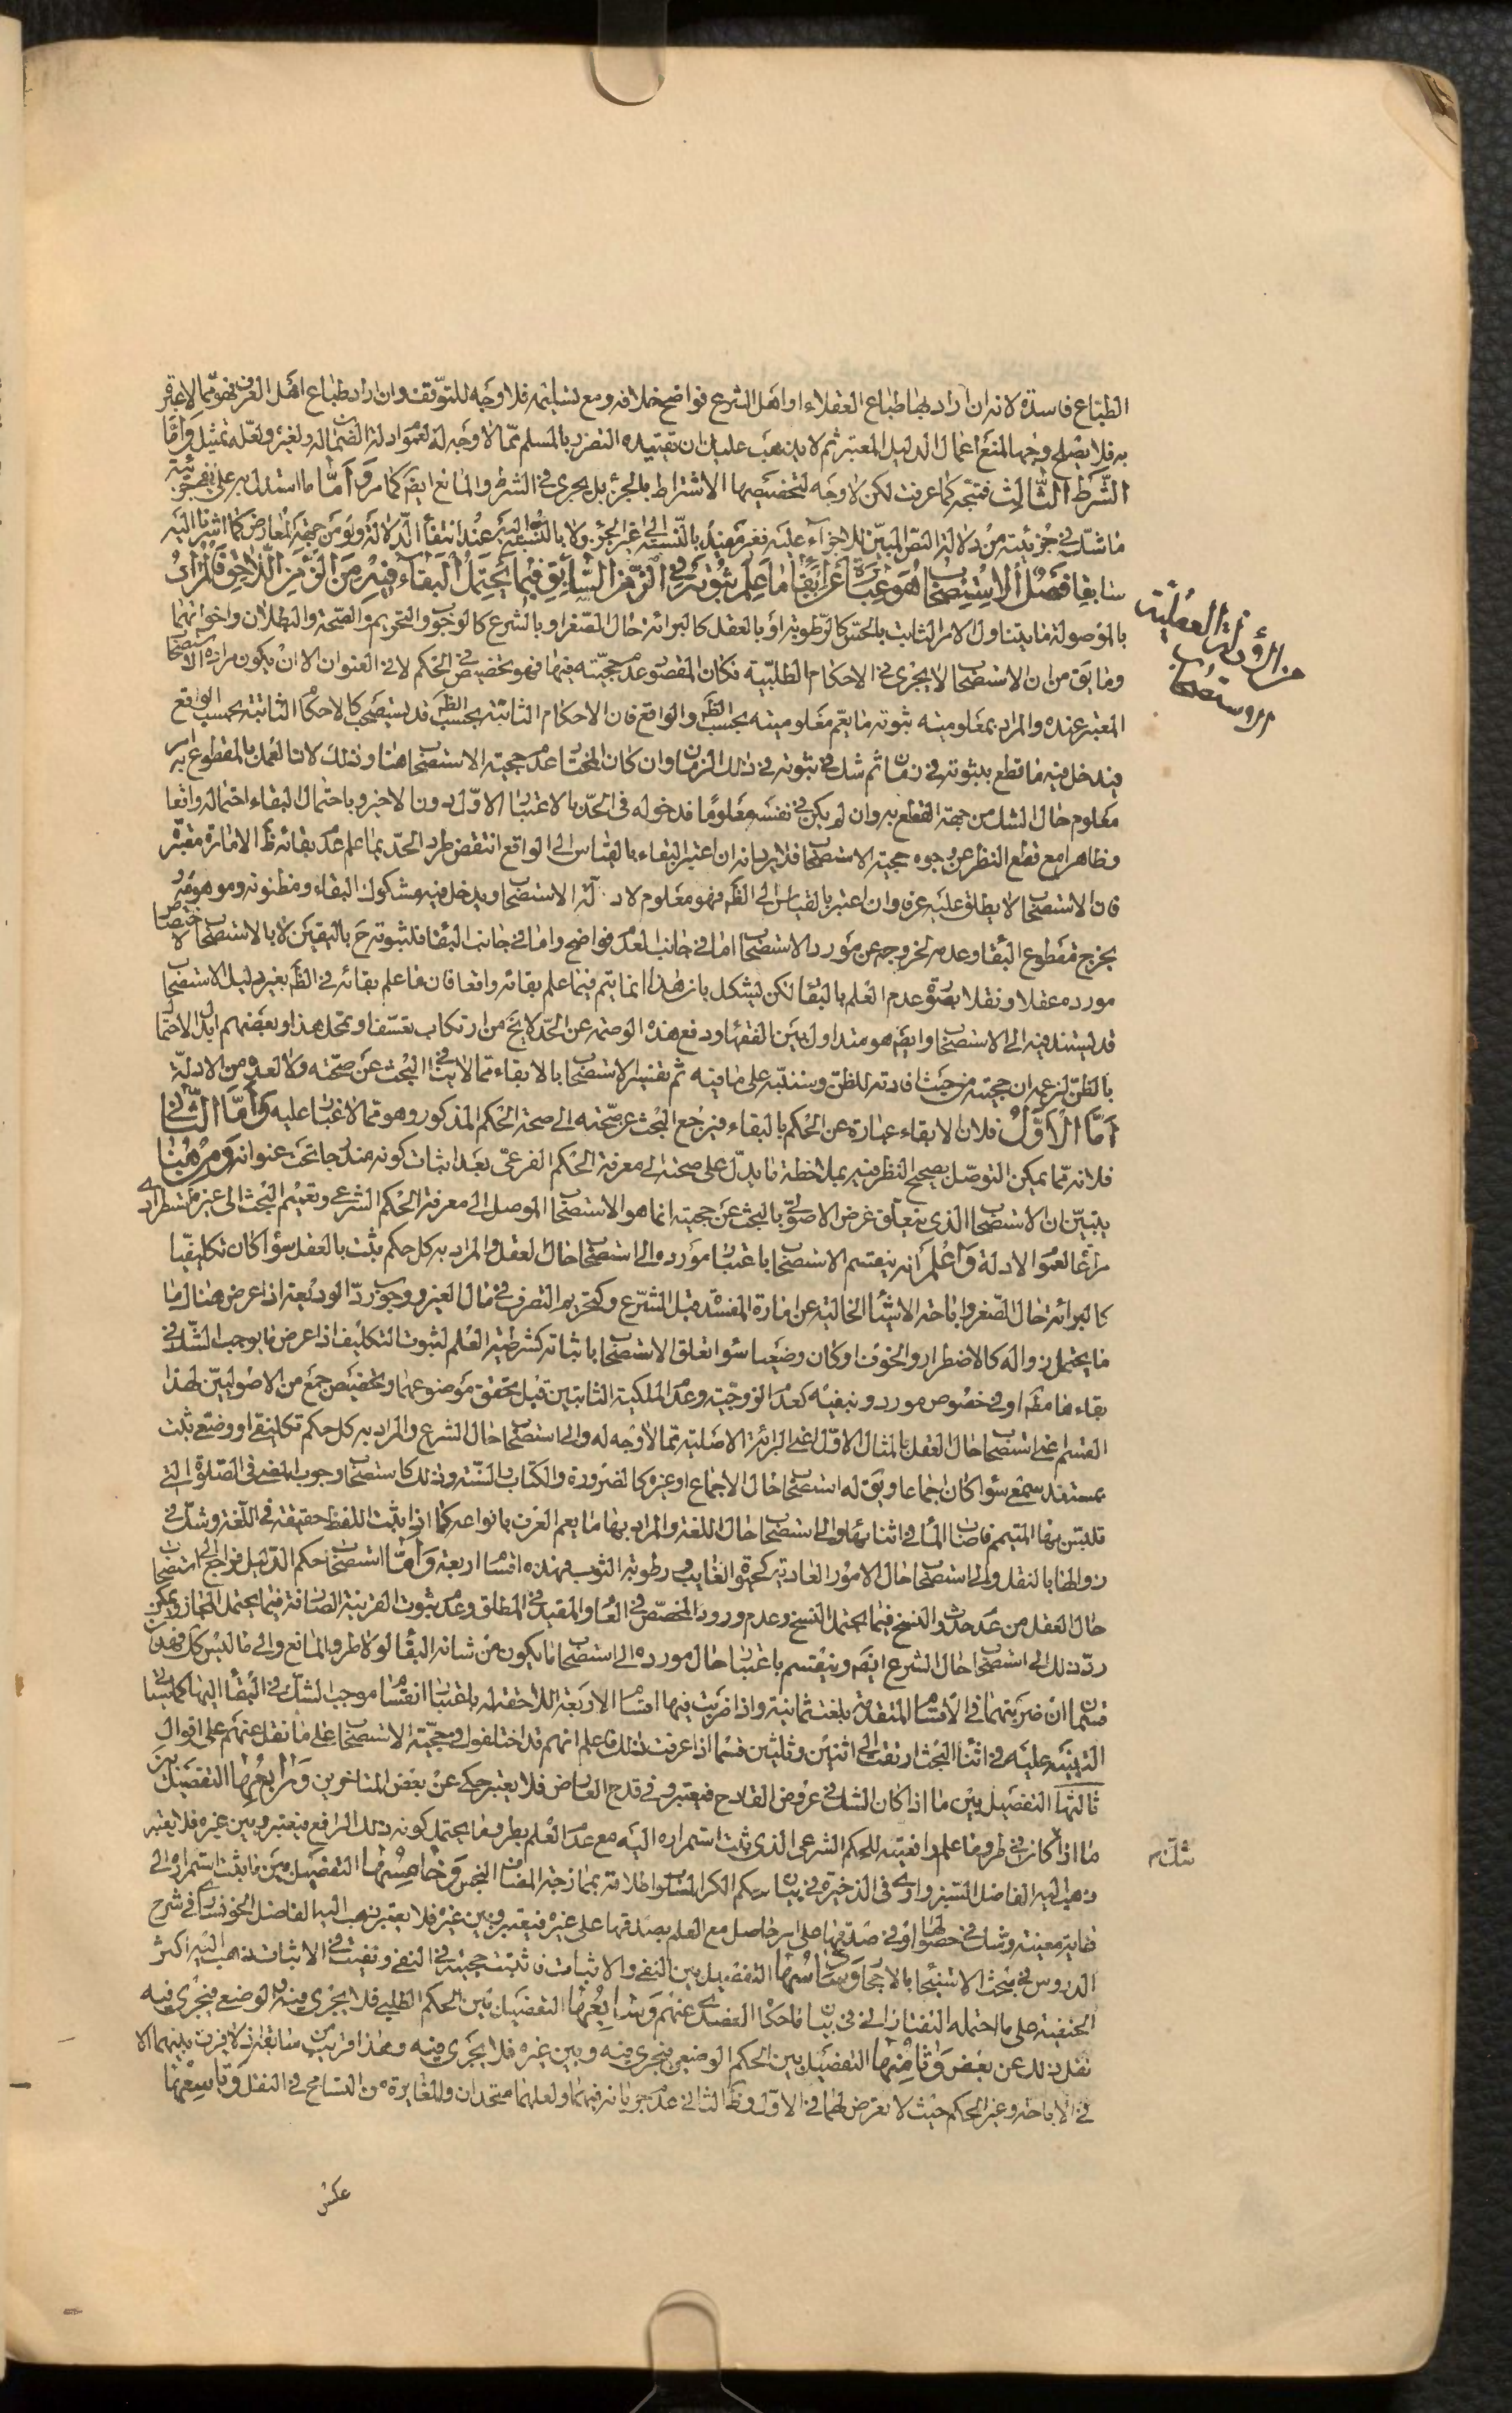 الطباع فاسدة لانه ان اراد بها طباع العقلاء او اهل الشرع فواضح خلافه ومع تسليمه فلا وجه للتوقف وان اراد طباع اهل العرف فهو مما لا عبرة
به فلا يصلح وجها لمنع اعمال الدليل المعتبر ثم لا يذهب عليك ان تقييده التضرر بالمسلم مما لا وجه له لعموم ادلة الضمان له ولغيره ولعله تمثيل واما
الشرط الثالث فمتجه كما عرفت لكن لا وجه لتخصيصها الاشتراط بالجزء بل يجري في الشرط والمانع ايضا كما مر واما ما استدل به على نفي جزئية
ما شك في جزئيته من دلالة النص المبين للاجزاء عليه فغير مفيد بالنسبة الى غير الجزء ولا بالنسبة اليه عند انتفاء الدلالة ولو من جهة المعارض كما اشرنا اليه
سابقا فصل الاستصحاب هو عبارة عن ابقاء ما علم ثبوته في الزمن السابق فيما يحتمل البقاء فيه من الزمن اللاحق فالمراد
بالموصولة ما يتناول الامر الثابت بالحس كالرطوبة او بالعقل كالبرائة حال الصغر او بالشرع كالوجوب والتحريم والصحة والبطلان واخواتهما
وما يق من ان الاستصحاب لا يجري في الاحكام الطلبية فكان المقصود عدم حجيته فيها فهو تخصيص في الحكم لا في العنوان الا ان يكون مراده الاستصحاب
المعتبر عنده والمراد بمعلومية ثبوته ما يعم معلوميته بحسب الظ والواقع فان الاحكام الثابتة بحسب الظ قد يستصحب كالاحكام الثابتة بحسب الواقع
فيدخل فيه ما قطع بثبوته في زمان ثم شك في ثبوته في ذلك الزمان وان كان المختار عدم حجية الاستصحاب هنا وذلك لانا لعمل بالمقطوع به
معلوم حال الشك من جهة القطع به وان لم يكن في نفسه معلوما فدخوله في الحد بالاعتبار الاول دون الاخير وباحتمال البقاء احتماله واقعا
وظاهرا مع قطع النظر عن وجوه حجية الاستصحاب فلا يرد انه ان اعتبر البقاء بالقياس الى الواقع انتقض طرد الحد بما علم عدم بقائه ظ لامارة معتبرة
فان الاستصحاب لا يطلق عليه عرفا وان اعتبر بالقياس الى الظ فهو معلوم لادلة الاستصحاب ويدخل فيه مشكوك البقاء ومظنونه وموهومه و
يخرج مقطوع البقاء وعدمه لخروجه عن مورد الاستصحاب اما في جانب العدم فواضح واما في جانب البقاء فلثبوته ح باليقين لا بالاستصحاب لاختصاص
مورده عقلا ونقلا بصورة عدم العلم بالبقاء لكن يشكل بان هذا انما يتم فيما علم بقائه واقعا فان ما علم بقائه في الظ بغير دليل الاستصحاب
قد يستند فيه الى الاستصحاب وايضا هو متداول بين الفقهاء ودفع هذه الوصمة عن الحد لا يخ من ارتكاب تعسف او تمحل هذا وبعضهم ابدل الاحتمال
بالظن لزعمه ان حجيته من حيث افادته للظن وسننبه على ما فيه ثم تفسير الاستصحاب بالابقاء مما لا ينافي البحث عن صحته ولا لعده من الادلة
اما الاول فلان الابقاء عبارة عن الحكم بالبقاء فيرجع البحث عن صحته الى صحة الحكم المذكور وهو مما لا غبار عليه واما الثاني
فلانه مما يمكن التوصل بصحيح النظر فيه بملاحظة ما يدل على صحته الى معرفة الحكم الفرعي بعد اثبات كونه مندرجا تحت عنوانه ومن هنا
يتبين ان الاستصحاب الذي يتعلق غرض الاصولي بالبحث عن حجيته انما هو الاستصحاب الموصل الى معرفة الحكم الشرعي وتعميم البحث الى غيره استطرادي
مراعا لعموم الادلة واعلم انه ينقسم الاستصحاب باعتبار مورده الى استصحاب حال العقل والمراد به كل حكم يثبت بالعقل سواء كان تكليفيا
كالبرائة حال الصغر واباحة الاشياء الخالية عن امارة المفسدة قبل الشرع وكتحريم التصرف في مال الغير ووجوب رد الوديعة اذا عرض هناك ما
ما يحتمل زواله كالاضطرار والخوف او كان وضعيا سواء تعلق الاستصحاب باثباته كشرطية العلم لثبوت التكليف اذا عرض ما يوجب الشك في
بقاءها مط او في خصوص مورد وبنفيه كعدم الزوجية وعدم الملكية الثابتين قبل تحقق موضوعهما وتخصيص جمع من الاصوليين لهذا
القسم اعني استصحاب حال العقل بالمثال الاول اعني البرائة الاصلية مما لا وجه له والى استصحاب حال الشرع والمراد به كل حكم تكليفي او وضعي ثبت
بمستند سمعي سواء كان اجماعا ويق له استصحاب حال الاجماع او غيره كالضرورة والكتاب والسنة وذلك كاستصحاب وجوب المضي في الصلوة التي
تلبس بها المتيمم فاصاب الماء في اثنائها والى استصحاب حال اللغة والمراد بها ما يعم العرف بانواعه كما اذا ثبت اللفظ حقيقة في اللغة وشك في
زوالها بالنقل والى استصحاب حال الامور العادية كحيوة الغايب ورطوبة الثوب فهذه اقسام اربعة واما استصحاب حكم الدليل فراجع الى استصحاب
حال العقل من عدم حدوث النسخ فيما يحتمل النسخ وعدم ورود المخصص في العام والمقيد في المطلق وعدم ثبوت القرينة الصارفة فيما يحتمل المجاز ويمكن
رد ذلك الى استصحاب حال الشرع ايضا وينقسم باعتبار حال مورده الى استصحاب ما يكون من شانه البقاء لولا طرو المانع والى ما ليس كك فهذان
قسمان ان ضربتهما في الاقسام المتقدمة بلغت ثمانية واذا ضربت فيها اقسام الاربعة اللاحقة له باعتبار انقسام موجب الشك في البقاء اليها كما ياتي
التنبيه عليه في اثناء البحث ارتقت الى اثنين وثلثين قسما اذا عرفت ذلك فاعلم انهم قد اختلفوا في حجية الاستصحاب على ما نقل عنهم على اقوال
ثالثها التفصيل بين ما اذا كان الشك في عروض القادح فيعتبر وفي قدح العارض فلا يعتبر حكي عن بعض المتاخرين ورابعها التفصيل بين
ما اذا كان في طرو ما علم رافعيته للحكم الشرعي الذي ثبت استمراره اليه مع عدم العلم بطرو ما يحتمل كونه ذلك الرافع فيعتبر وبين غيره فلا يعتبر
ذهب اليه الفاضل السبزواري في الذخيرة في بيان حكم الكر المسلوب اطلاقه بممازجة المضاف النجس وخامسها التفصيل بين ما يثبت استمراره الى
غاية معينة وشك في حصولها او في صدقها على امر حاصل مع العلم بصدقها على غيره فيعتبر وبين غيره فلا يعتبر ذهب اليه الفاضل الخونساري في شرح
الدروس في مبحث الاستنجاء بالاحجار وسادسها التفصيل بين النفي والاثبات فاثبتت حجيته في النفي ونفيت في الاثبات ذهب اليه اكثر
الحنفية على ما احتمله التفتازاني في بيان ما حكاه العضدي عنهم وسابعها التفصيل بين الحكم الطلبي فلا يجري فيه والوضعي فيجري فيه
نقل ذلك عن بعض وثامنها التفصيل بين الحكم الوضعي فيجري فيه وبين غيره فلا يجري فيه وهذا قريب من سابقه اذ لا فرق بينهما الا
في الاباحة وغير الحكم حيث لا تعرض لهما في الاول وظ الثاني عدم جريانه فيهما ولعلهما متحدان والمغايرة من التسامح في النقل وتاسعها
من الادلة العقلية
الاستصحاب
شك م